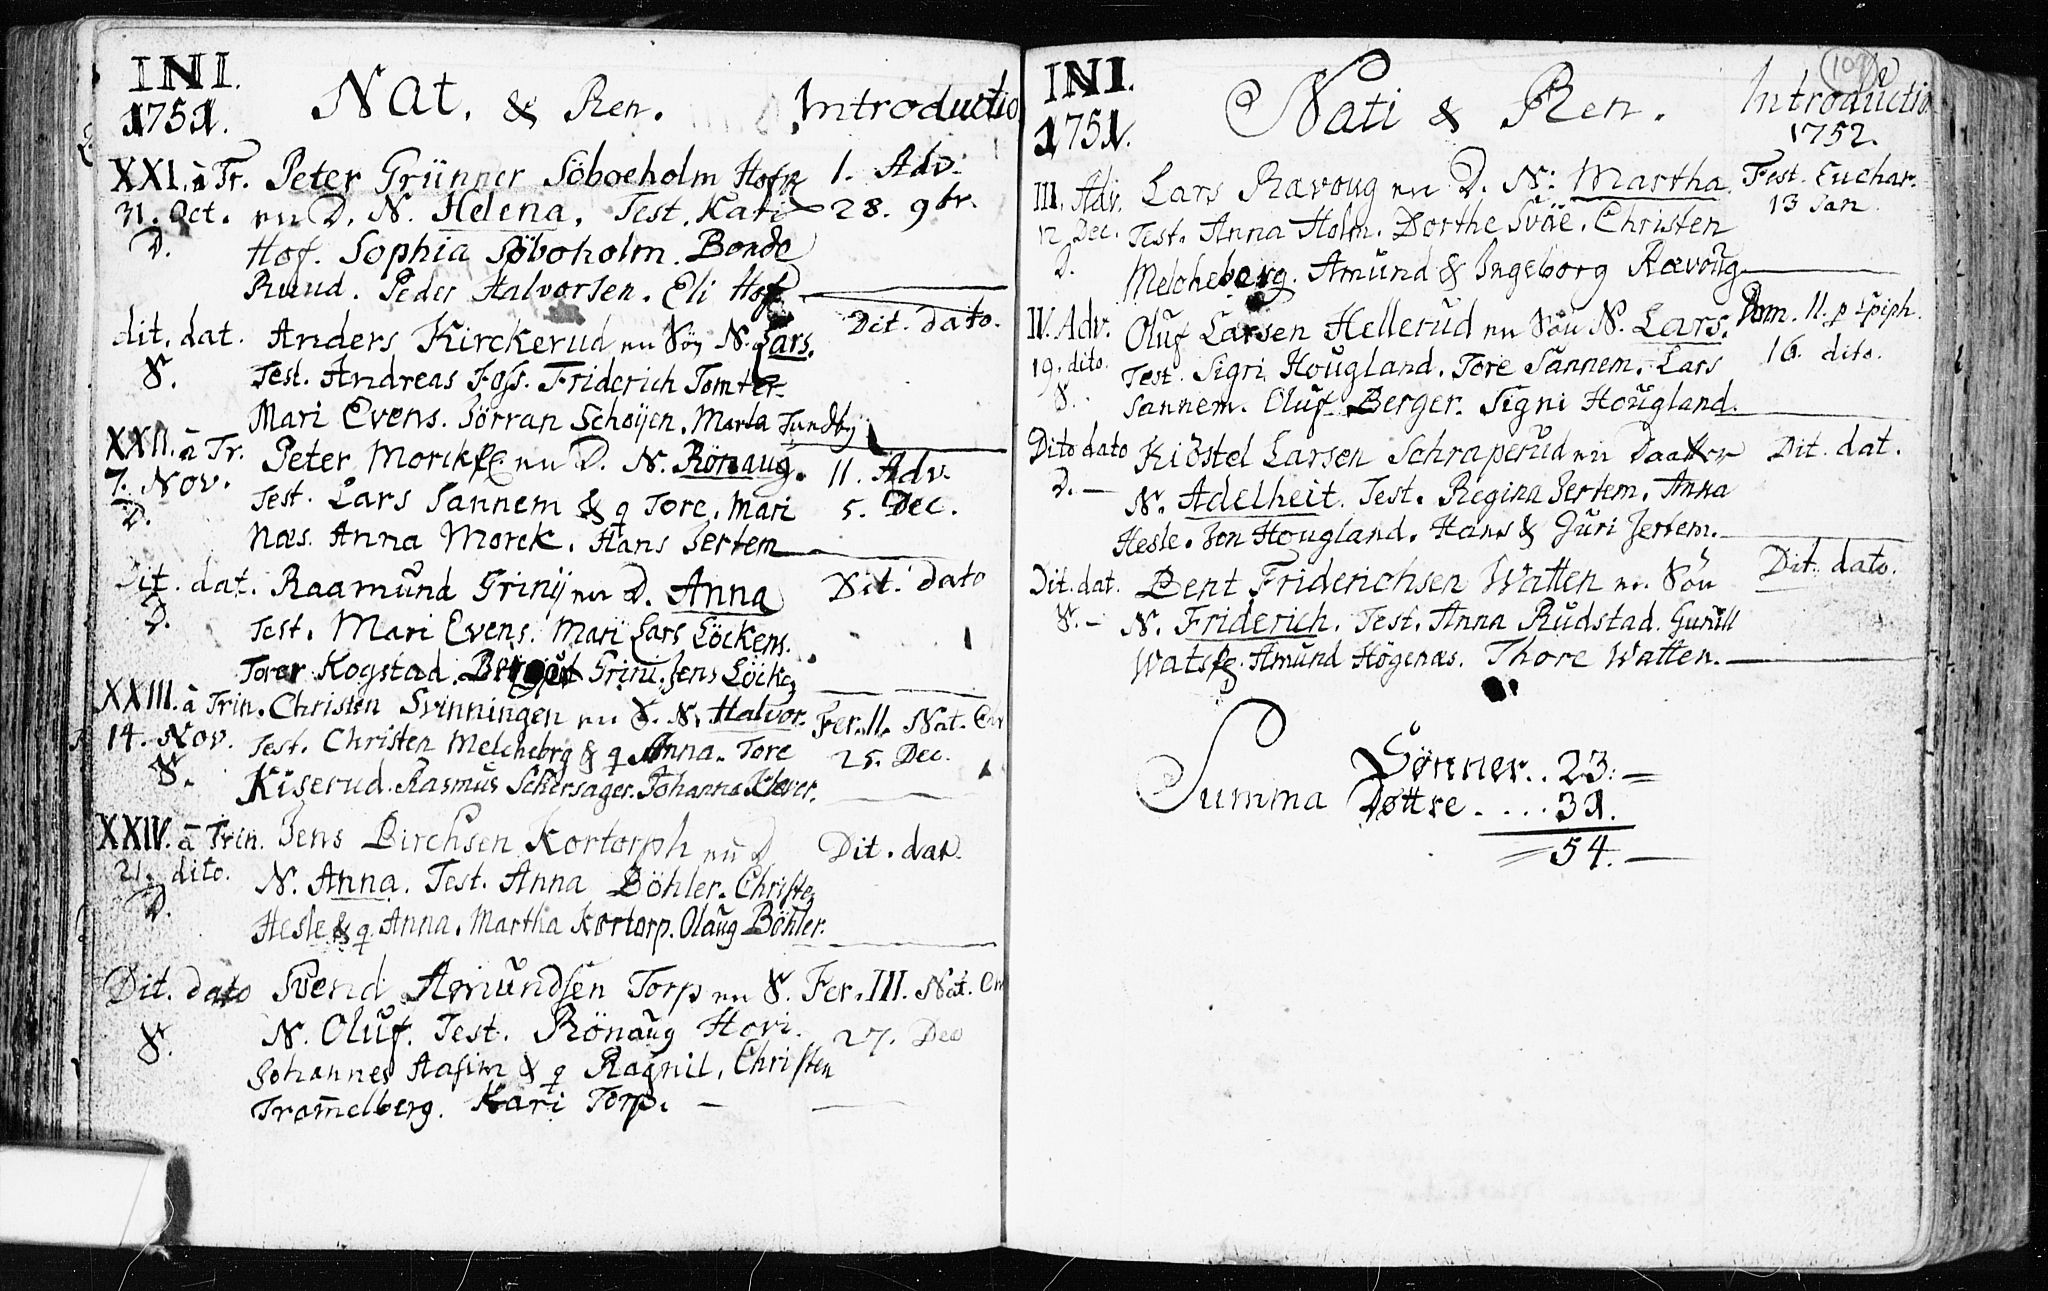 INI.
1751.
Nat. & Ren.
Introductio
XXI. à Tr. Peter Grünner Söboeholm Hofn 1. Adv.
31. Oct. en D. N. Helena. Test. Kari 28. 9br.
D. Hof. Sophia Söboholm. Bonde
Ruud. Peder Halvorsen. Eli Hof.
dit. dat. Anders Kirckerud en Sön N. Lars. Dit. dato.
S. Test. Andreas Foss. Friderich Tomter
Mari Evens. Sörran Schöijen. Marta Fundby
XXII. à Tr. Peter Morck en D. N. Rönaug. 11. Adv.
7. Nov. Test. Lars Sannem & q Tore. Mari 5. Dec.
D. Næs. Anna Morck. Hans Sertem
Dit. dat. Raamund Grinij en D. Anna Dit. dato
D. Test. Mari Evens. Mari Lars Löckens.
Torer Kogstad. Grini. Jens Löcke
XXIII. à Trin. Christen Svinningen en S. N. Halvor. Fer. 11. Nat. Chr
14. Nov. Test. Christen Melcheberg & q Anna. Tore 25. Dec.
S. Kiserud. Rasmus Schersager. Johanna Klever.
XXIV. à Trin. Jens Birchsen Kortorph en D Dit. dat.
21. dito. N. Anna. Test. Anna Böhler. Christen
D. Hesle & q Anna. Martha Kortorp. Olaug Böhler.
Dit. dato Svend Amundsen Torp en S. Fer. III. Nat. Chr
S. N. Oluf. Test. Rönaug Hovi. 27. Dec
Johannes Aasim & q Ragnil. Christen
Tromelberg. Kari Torp.
INI.
1751.
Nati & Ren.
109
Introductio
1752.
III. Adv. Lars Rævoug en D. N: Martha. Fest. Euchar.
12 Dec. Test. Anna Holm. Dorthe Sväe. Christen 13 Jan.
D. Melcheberg. Amund & Ingeborg Rævoug
IV. Adv. Oluf Larsen Hellerud en Sön N. Lars. Dom. 11. p Epiph.
19. dito. Test. Sigri Hougland. Tore Sannem. Lars 16. dito.
S. Sannem. Oluf Berger. Signi Hougland.
Dito dato Kiöstel Larsen Schraperud en Daatter Dit. dat.
D. N. Adelheit. Test. Regina Sertem. Anna
Hesle. Jon Hougland. Hans & Guri Sertem.
Dit. dat. Bent Friderichsen Watten en Sön Dit. dato.
S. N. Friderich. Test. Anna Rudstad. Gunill
Wats. Amund Högenæs. Thore Watten.
Summa Sønner.. 23.
Døttre.... 31.
54.